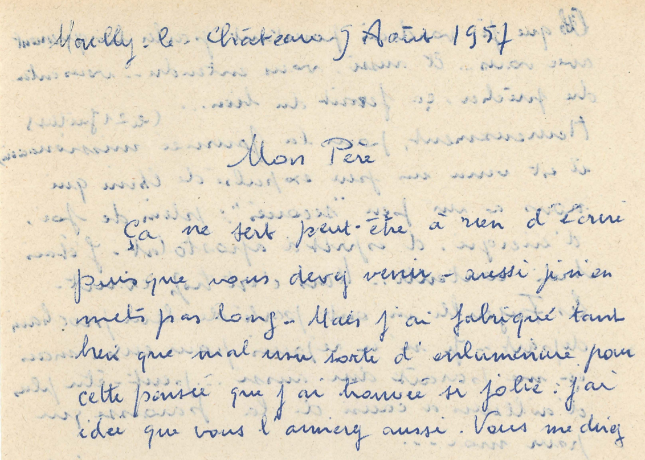 Mailly-le-Château 9 Août 1957
Mon Père
Ça ne sert peut-être à rien d'écrire
puisque vous devez venir - aussi je n'en
mets pas long - Mais j'ai fabriqué tant
bien que mal une sorte d'enluminure pour
cette pensée que j'ai trouvée si jolie : j'ai
idée que vous l'aimerez aussi. Vous me direz